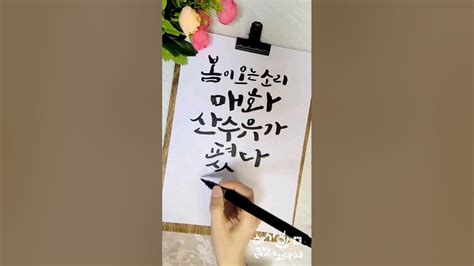 봄이 오는 소리
매화
산수유가
폈다